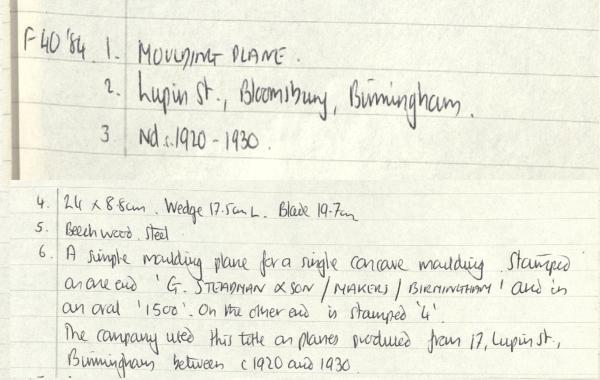 F40 '84 1. MOULDING PLANE.
2. Lupin St., Bloomsbury, Birmingham.
3. Nd c.1920 - 1930.
4. 24 x 8.8cm. Wedge 17.5cm L. Blade 19.7cm
5. Beechwood. Steel
6. A simple moulding plane for a single concave moulding. Stamped
on one end 'G. STEADMAN & SON / MAKERS / BIRMINGHAM' and in
an oval '1500'. On the other end is stamped '4'.
The company used this title on planes produced from 17, Lupin St.,
Birmingham between c 1920 and 1930.